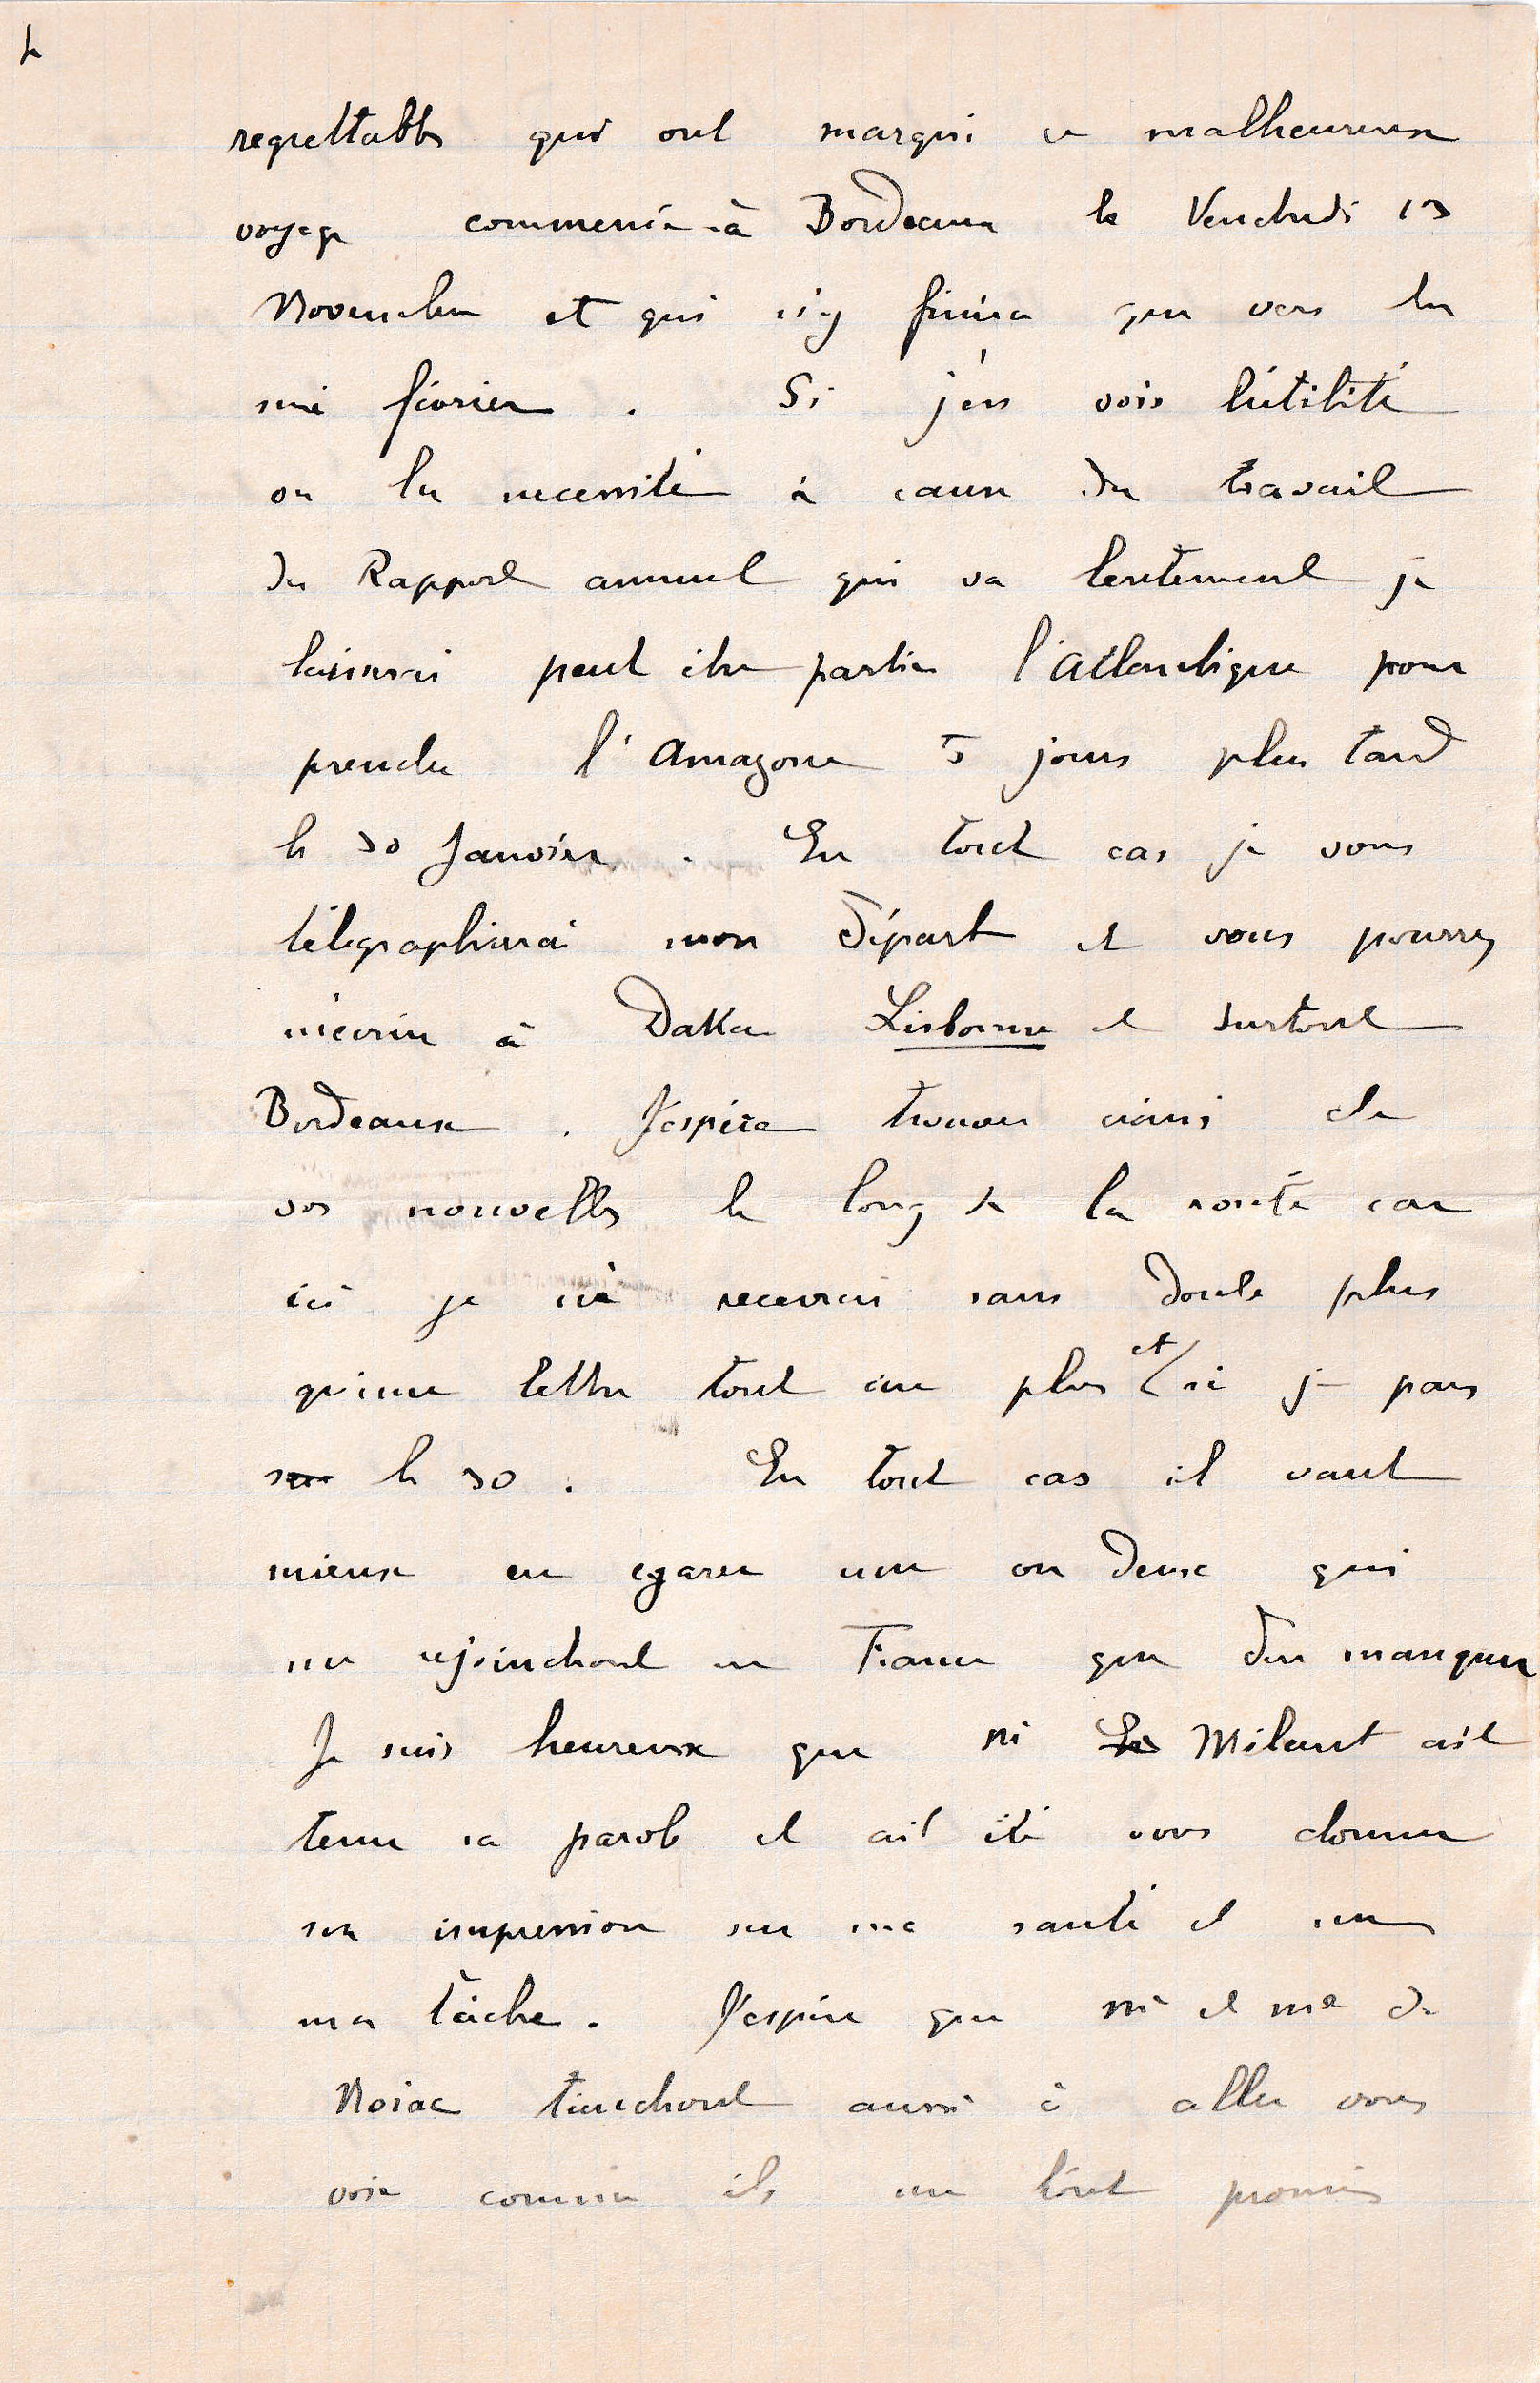 4
regrettables qui ont marqué ce malheureux
voyage commencé à Bordeaux le Vendredi 13
Novembre et qui n'y finira que vers la
mi février . Si j'en vois l'utilité
ou la necessité à cause du travail
du Rapport annuel qui va lentement je
laisserai peut être partir l'Atlantique pour
prendre l'Amazone 5 jours plus tard
le 30 Janvier . En tout cas je vous
télégraphierai mon départ et vous pourrez
m'ecrire à Dakar Lisbonne et surtout
Bordeaux . J'espère trouver ainsi de
vos nouvelles le long de la route car
ici je ne recevrai sans doute plus
qu'une lettre tout au plus et si je pars
le 30 . En tout cas il vaut
mieux en egarer une ou deux qui
me rejoindront en France que d'en manquer
Je suis heureux que Mr Milant ait
tenu sa parole et ait été vous donner
son impression sur ma santé et sur
ma tâche . J'espère que Mr et Me de
Noiac tiendront aussi à aller vous
voir comme ils me l'ont promis